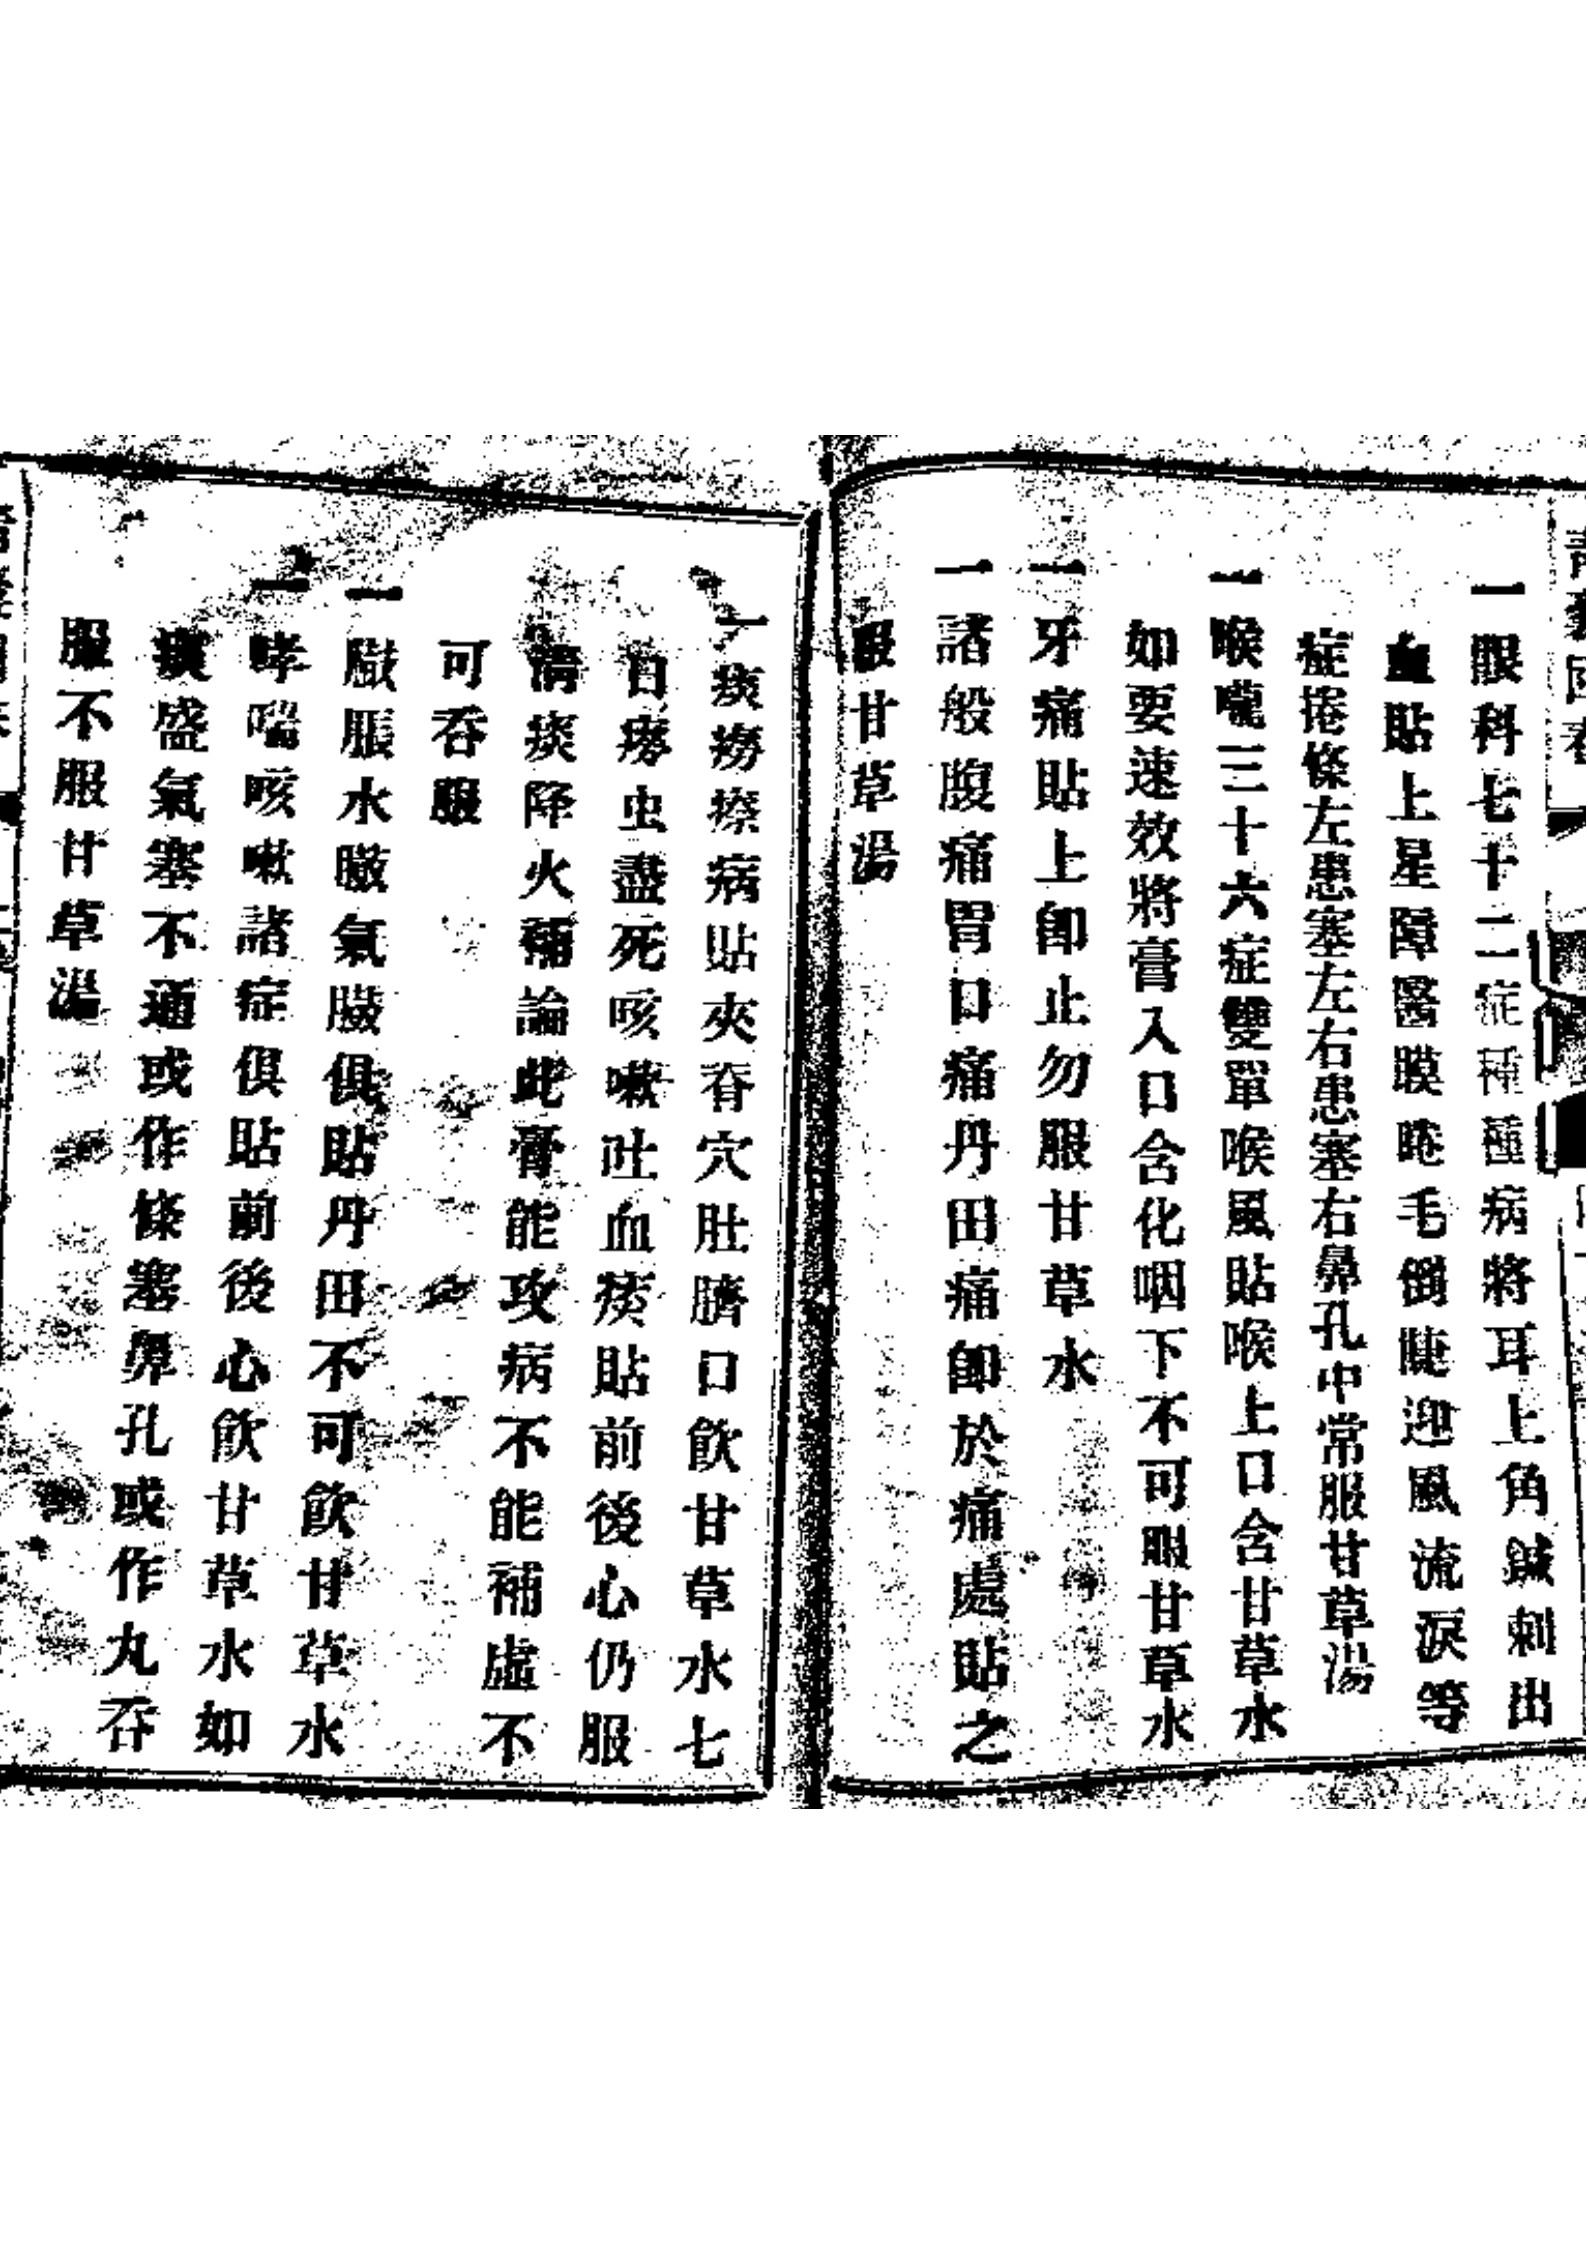 一眼科七十二症種種病將耳上角鍼刺出
血貼上星障醫膜睠毛倒睫迎風流淚等
症捲條左患塞左右患塞右鼻孔中常服甘草湯
一喉嚨三十六症雙單喉風貼喉上口含甘草水
如要速效將膏入口含化咽下不可服甘草水
一牙痛貼上卽止勿服甘草水
一諸般腹痛胃口痛丹田痛卽於痛處貼之
服甘草湯
一痰癆瘵病貼夾脊穴肚臍口飲甘草水七
日癆虫盡死咳嗽吐血痰貼前後心仍服
清痰降火補論此膏能攻病不能補虛不
可吞服
一臌脹水臌氣臌俱貼丹田不可飲甘草水
一哮喘咳嗽諸症俱貼前後心飲甘草水如
痰盛氣塞不通或作條塞鼻孔或作丸吞
服不服甘草湯